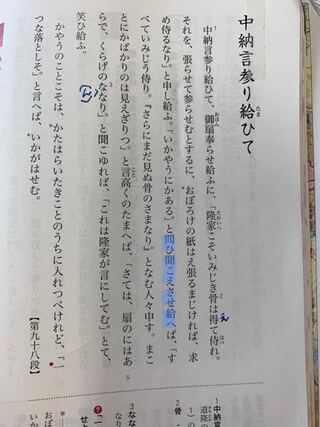 中納言参り給ひて
たま
中納言参り給ひて、御扇奉らせ給ふに、「隆家こそいみじき骨は得て侍れ。
それを、張らせて参らせむとするに、おぼろけの紙はえ張るまじければ、求
め侍るなり。」と申し給ふ。「いかやうにかある。」と問ひ聞こえさせ給へば、「す
べていみじう侍り。『さらにまだ見ぬ骨のさまなり。』となむ人々申す。まこ
とにかばかりのは見えざりつ。」と言高くのたまへば、「さては、扇のにはあ
らで、くらげのななり。」と聞こゆれば、「これは隆家が言にしてむ。」とて、
笑ひ給ふ。
かやうのことこそは、かたはらいたきことのうちに入れつべけれど、「一
つな落としそ。」と言へば、いかがはせむ。
【第九十八段】
5
1 中納言
道隆の
2 骨
3 なな
なり